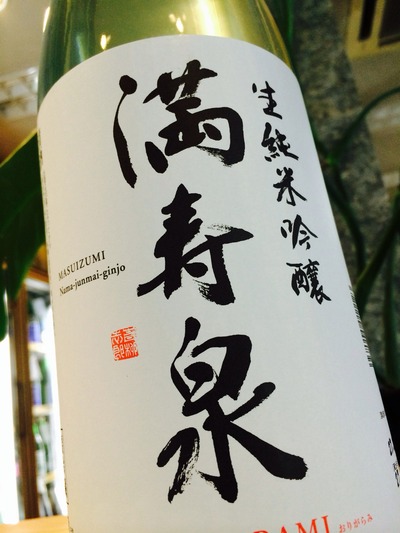 生純米吟醸
満寿泉
MASUIZUMI
Nama-junmai-ginjo
おりがらみ